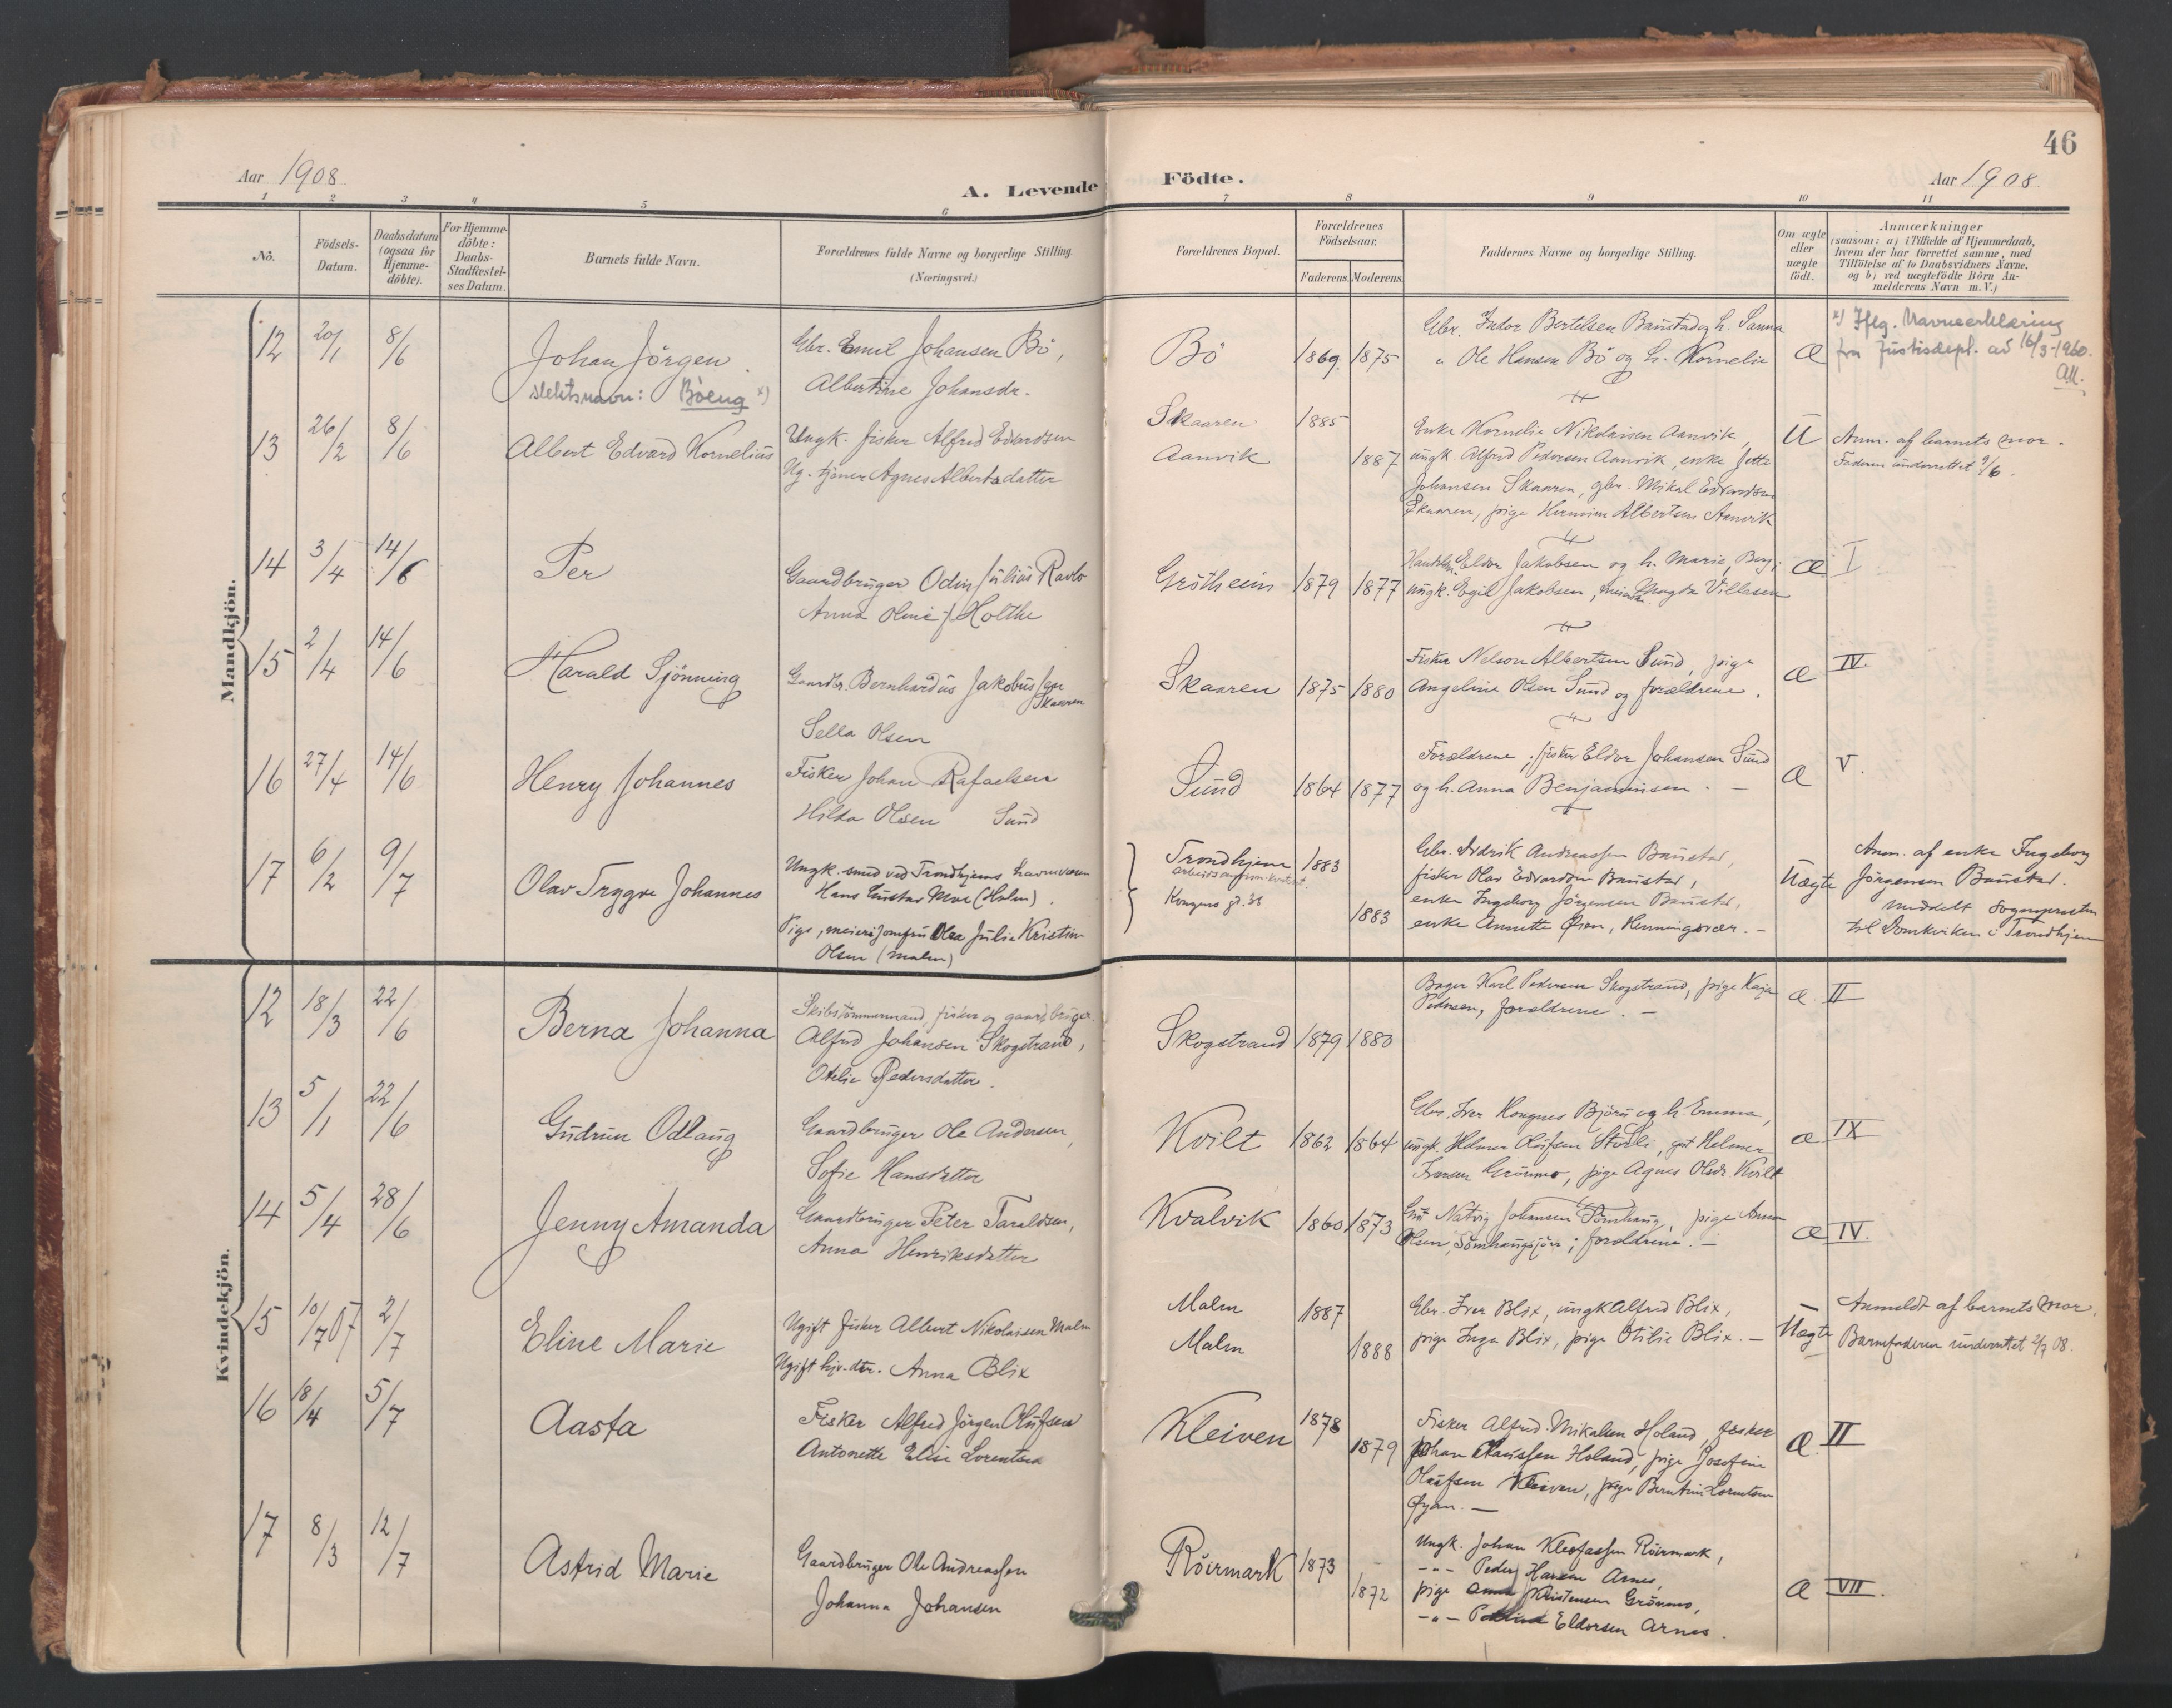 46
Aar 1908.
A. Levende Födte.
Aar 1908.
1 2 3 4 5 6 7 8 9 10 11
No.
Födsels-
Datum.
Daabsdatum
(ogsaa for
Hjemme-
döbte).
For Hjemme-
döbte:
Daabs-
Stadfæstel-
ses Datum.
Barnets fulde Navn.
Forældrenes fulde Navne og borgerlige Stilling.
(Næringsvei.)
Forældrenes Bopæl.
Forældrenes
Födselsaar.
Faderens. Moderens.
Faddernes Navne og borgerlige Stilling.
Om ægte
eller
uægte
födt.
Anmærkninger
(saasom: a) i Tilfælde af Hjemmedaab,
hvem der har forrettet samme, med
Tilföielse af to Daabsvidners Navne.
og b) ved uægtefödte Börn An-
melderens Navn m. V.)
Mandkjön.
12 20/1 8/6
Johan Jörgen.
slektsnavn: Böeng x)
Gbr. Emil Johansen Bö,
Albertine Johansdr.
Bö 1869. 1875
Gbr. Indor Bertelsen Baustad og h. Sanna
" Ole Hansen Bö og h. Kornelie
Æ
x) Iflg. Navneerklæring
fra Justisdept. av 16/3-1960.
13 26/2 8/6
Albert Edvard Kornelius
Ungk. fisker Alfred Edvardsen
Ug. tjener Agnes Albertsdatter
Skaaren 1885
Aanvik 1887
Enke Kornelie Nikolaisen Aanvik,
ungk. Alfred Pedersen Aanvik, enke Jette
Johansen Skaaren, gbr. Mikal Edvardsen
Skaaren, pige Albertsen Aanvik
U
Anm. af barnets mor.
Faderen underrettet 9/6.
14 3/4 14/6
Per
Gaardbruger Odin Julius Ravlo
Anna Oline f. Holthe
Grötheim 1879 1877
Eldor Jakobsen og h. Marie, Berg;
ungk. Egil Jakobsen, Magda Villesen
Æ I
15 2/4 14/6
Harald Sjönning
Gaardbr. Bernhardus Jakobus
Skaaren
Sella Olsen
Skaaren 1875 1880
Fisker Nelson Albertsen Sund, pige
Angeline Olsen Sund og forældrene.
Æ IV.
16 27/4 14/6
Henry Johannes
Fisker Johan Rafaelsen
Hilda Olsen Sund
Sund 1864 1877
Forældrene; fisker Eldor Johansen Sund
og h. Anna Benjaminsen. -
Æ V.
17 6/2 9/7
Olav Tryggve Johannes
Ungk. smed ved Trondhjems havnevæsen
Hans Gustav Moe (Holm).
Pige, meierijomfru Olea Julie Kristine
Olsen (Malm)
Trondhjem 1883
Kongens gd. 38
1883
Gbr. Andreassen Baustad,
fisker Olav Edvardsen Baustad,
enke Ingeborg Jörgensen Baustad,
enke Annette Öien, Henningsvær. -
Uægte
Anm. af enke Ingeborg
Jörgensen Baustad.
meddelt Sogneprsten
til Domkirken i Trondhjem
Kvindekjön.
12 18/3 22/6
Berna Johanna
Skibstömmermand, fisker og gaardbruger.
Alfred Johansen Skogstrand,
Otelie Pedersdatter.
Skogstrand 1879 1880
Bager Karl Pedersen Skogstrand, pige Kaja
Pedersen, forældrene. -
Æ II
13 5/1 22/6
Gudrun Odlaug
Gaardbruger Ole Andersen,
Sofie Hansdatter
Kvilt 1862 1864
Gbr. Iver Kongnes Björu og h. Emma,
ungk. Helmer Olufsen Stodli, gut Helmer
Iversen Grönmo, pige Agnes Olsdr. Kvilt
Æ IX
14 5/4 28/6
Jenny Amanda
Gaardbruger Peter Taraldsen,
Anna Henriksdatter
Kvalvik 1860 1873
Gut Natvig Johansen Sömhaug, pige Anna
Olsen, Sömhaugsjöen; forældrene. -
Æ IV.
15 10/7 07 2/7
Eline Marie
Ugift fisker Albert Nikolaisen Malm
Ugift hjv. dtr. Anna Blix
Malm 1887
Malm 1888
Gbr. Iver Blix, ungk Alfred Blix,
pige Inga Blix, pige Otilie Blix. -
Uægte
Anmeldt af barnets mor.
Barnefaderen underrettet 2/7 08.
16 18/4 5/7
Aasta
Fisker Alfred Jörgen Olufsen
Antonette Elise Lorentsen
Kleiven 1878
1879
Fisker Alfred Mikalsen Holand, fisker
Johan Claussen Holand, pige Josefine
Olufsen Kleiven, pige Berntine Lorentsen
Öyan. -
Æ. II
17 8/3 12/7
Astrid Marie
Gaardbruger Ole Andreassen
Johanna Johansen
Röirmark 1873
1872
Ungk. Johan Kleofassen Röirmark,
-"- Peder Hansen Arnes,
pige Anna Kristensen Grönmo,
-"- Eldorsen Arnes.
Æ VII.